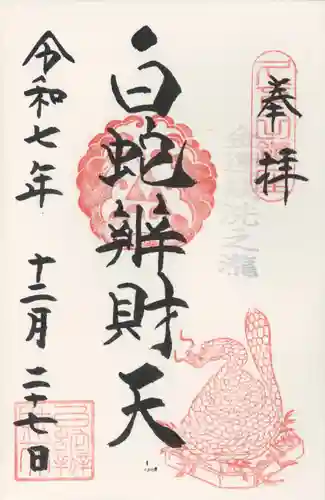 奉拝
白蛇辨財天
令和七年 十二月 二十七日